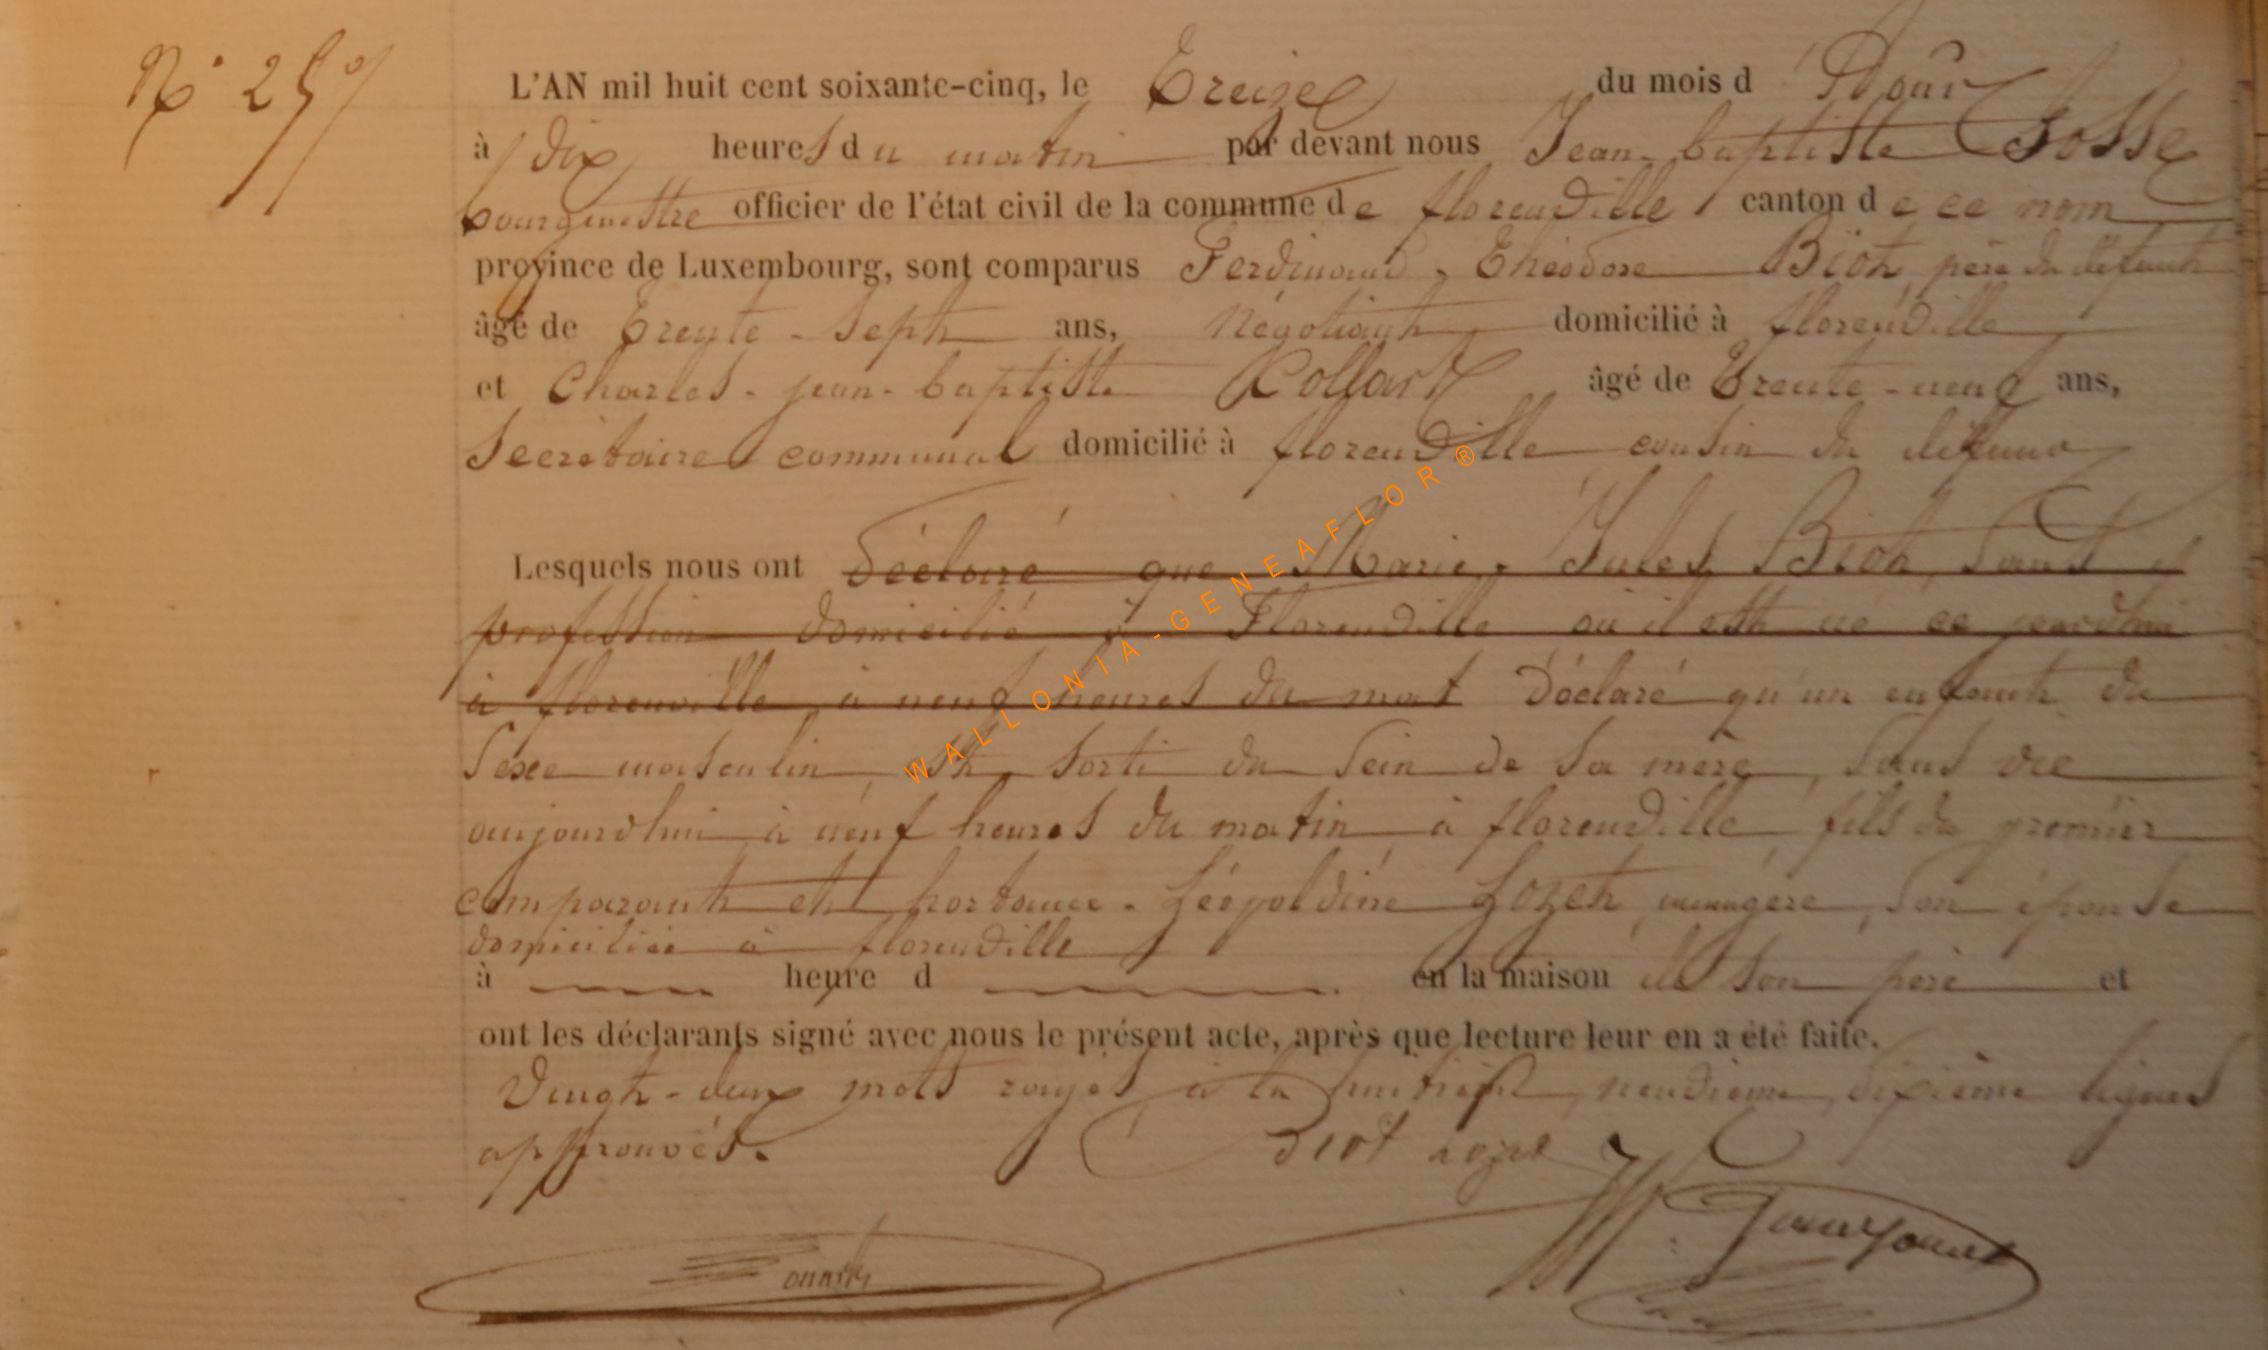 N° 25
L'AN mil huit cent soixante-cinq, le Treize du mois d' Août
à dix heures du matin par devant nous Jean-baptiste Fosse
bourgmestre officier de l'état civil de la commune de florenville canton de ce nom
province de Luxembourg, sont comparus Ferdinand, Théodore Biot, père du défunt
âgé de trente-sept ans, négotiant domicilié à florenville
et Charles-jean-baptiste Collart âgé de trente-neuf ans,
secrétaire communal domicilié à florenville cousin du défunt
Lesquels nous ont déclaré que Marie, Jules Biot, sans
profession domicilié à Florenville où il est né ce jourdhui
à florenville à neuf heures du mat déclaré qu'un enfant du
sexe masculin, est sorti du sein de sa mère, sans vie
aujourdhui à neuf heures du matin à florenville fils du premier
comparant et hortance-Léopoldine Lozet, ménagère, son épouse
domiciliée à florenville
à heure d en la maison de son père et
ont les déclarants signé avec nous le présent acte, après que lecture leur en a été faite.
Vingt-deux mots rayés à la huitième, neuvième, dixième lignes
approuvés. Biot Lozet
WALLONIA-GENEAFLOR®